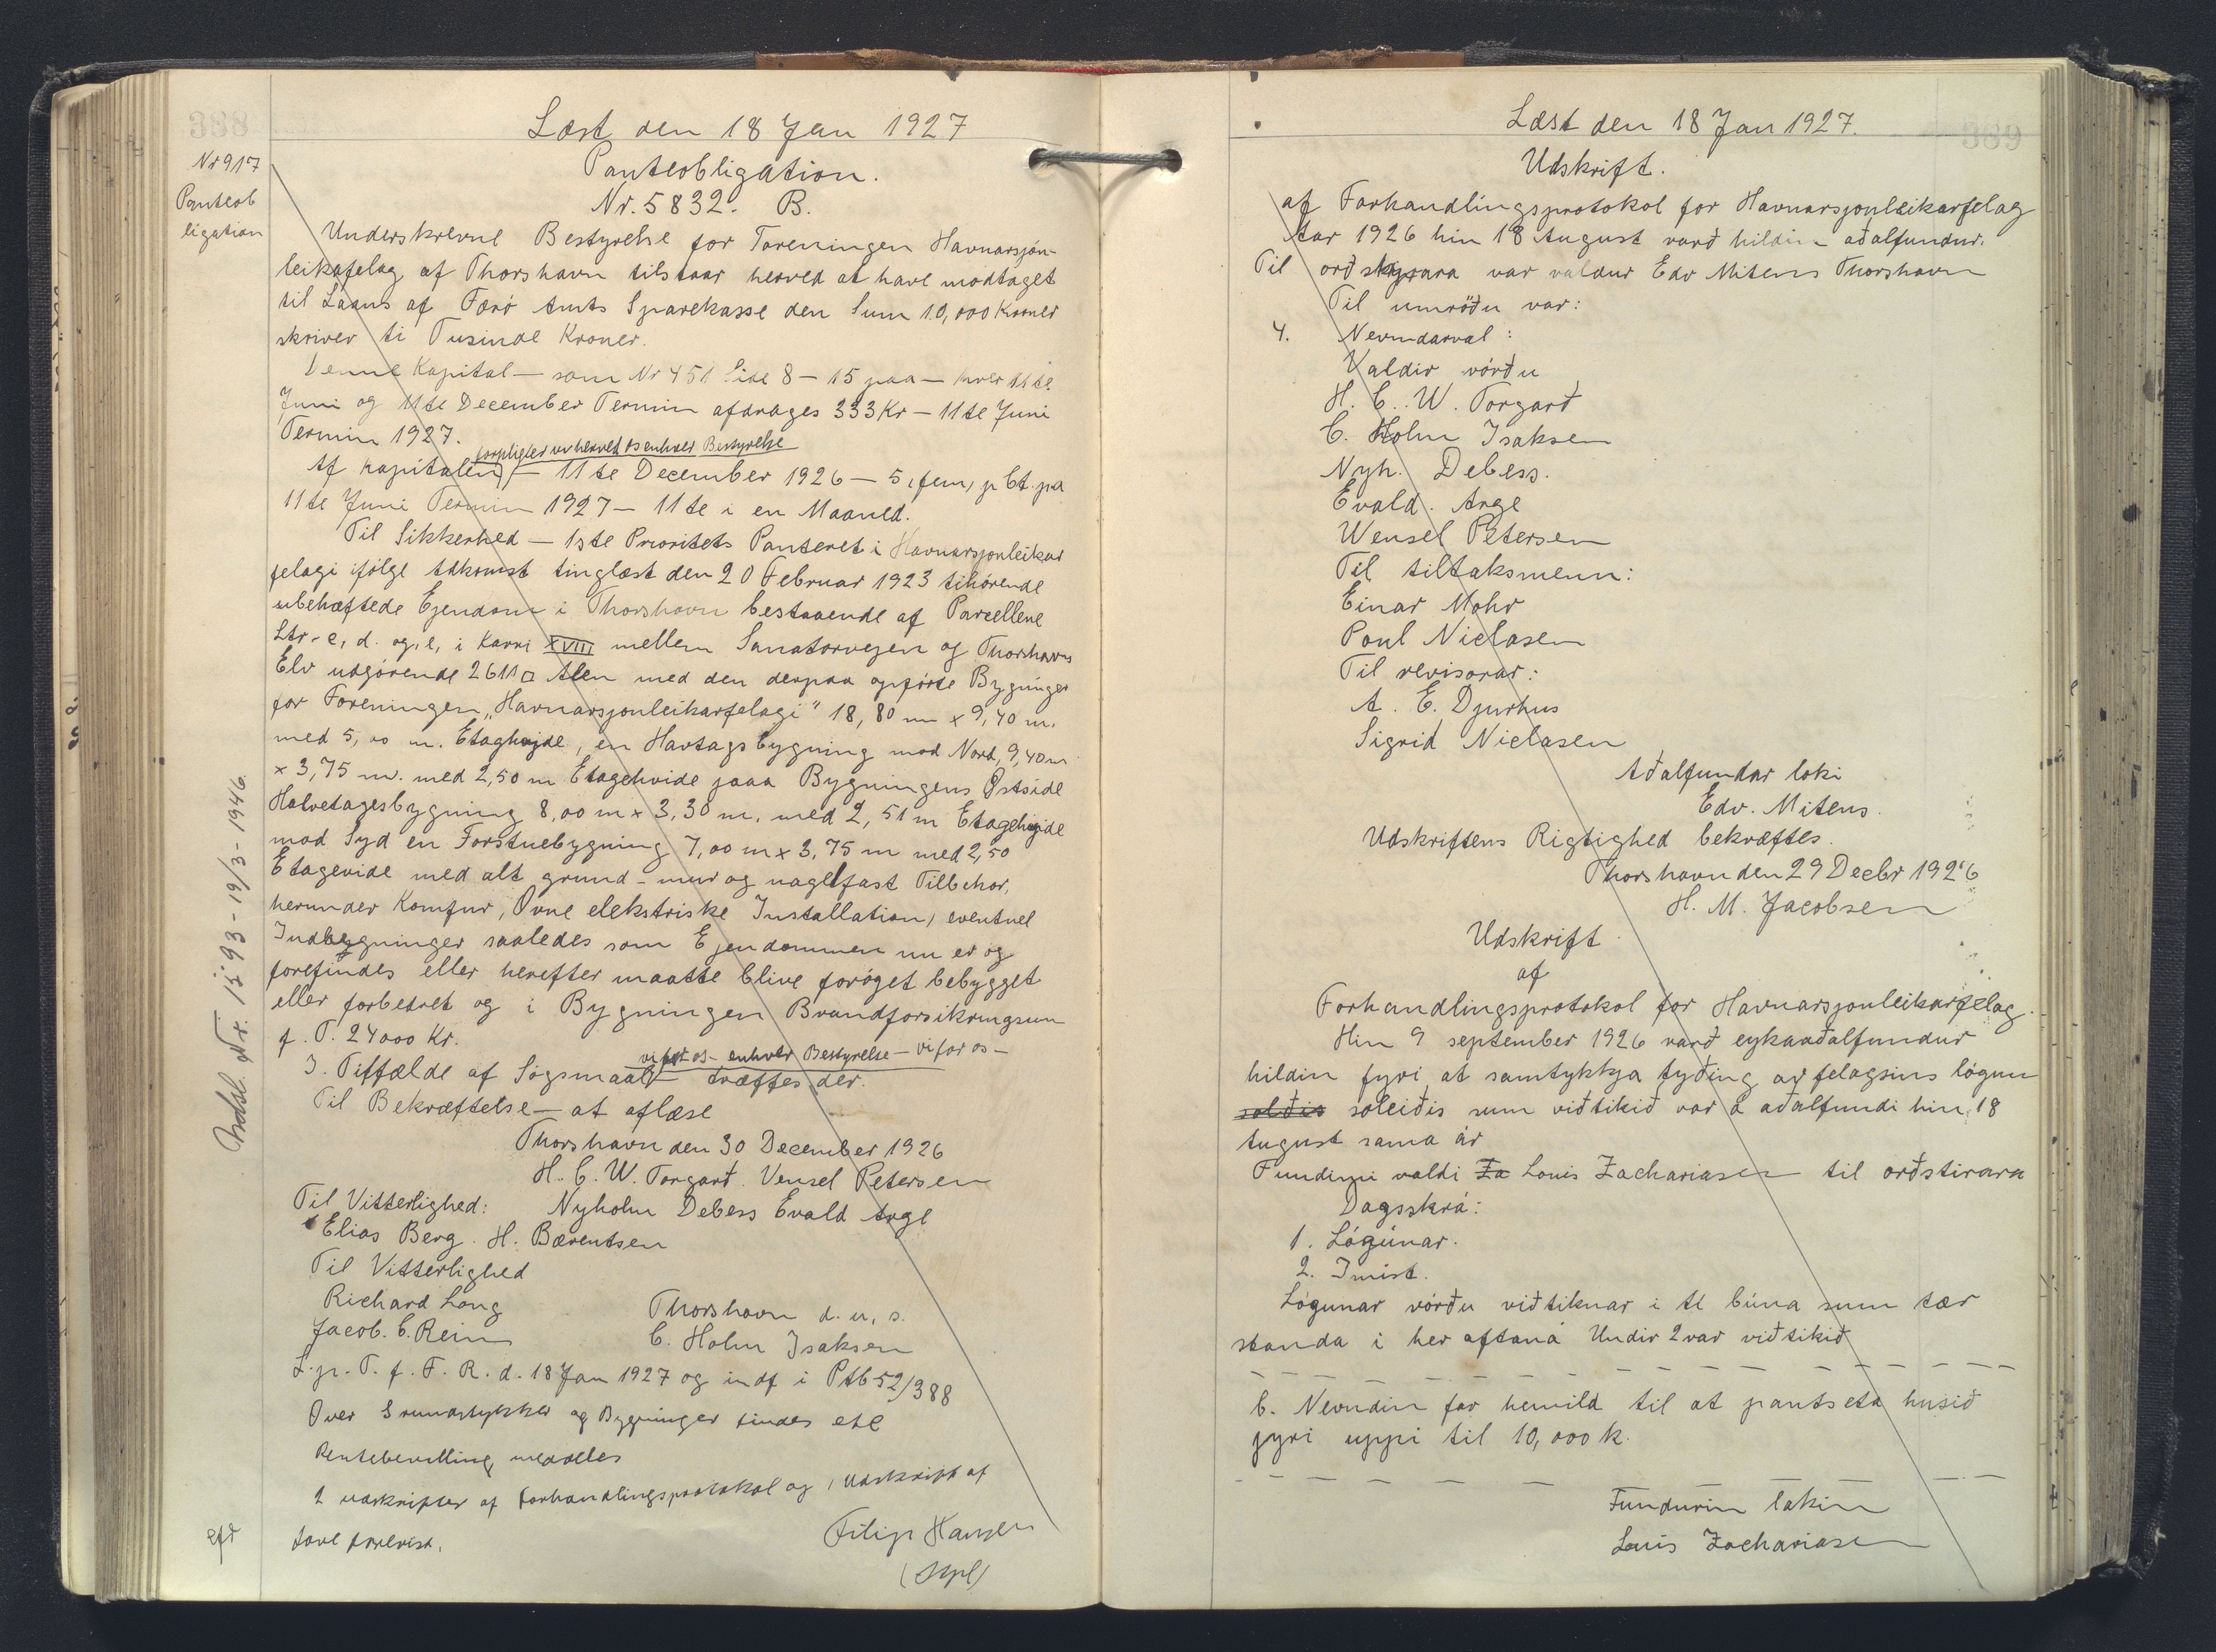 338
Læst den 18 Jan 1927
Nr 917
Panteob
ligation
Panteobligation.
Nr. 5832. B.
Underskrevne Bestyrelse for Foreningen Havnarsjón-
leikafelag af Thorshavn tilstaar herved at have modtaget
til Laans af Færø Amts Sparekasse den Sum 10,000 Kroner
skriver ti Tusinde Kroner.
Denne Kapital — som Nr 451 Side 8 — 15 paa — hver 11te
Juni og 11te December Termin afdrages 333 Kr — 11te Juni
Termin 1927.
forpligter vi herved os enhver Bestyrelse
Af Kapitalen — 11te December 1926 — 5, fem, p Ct. pa
11te Juni Termin 1927 — 11te i en Maaned.
Til Sikkerhed — 1ste Prioritets Panteret i Havnarsjonleikar
felagi ifølge Adkomst tinglæst den 20 Februar 1923 tihørende
ubehæftede Ejendom i Thorshavn bestaaende af Parcellene
Ltr. c, d. og, e, i Karré XVIII mellem Sanatorvejen og Thorshavns
Elv udgjørende 2611 □ Alen med den derpaa opførte Bygninger
for Foreningen „Havnarsjonleikarfelagi" 18,80 m x 9,40 m.
med 5,10 m. Etaghøjde, en Havtagsbygning mod Nord, 9,40 m
x 3,75 m. med 2,50 m Etagehvide paaa Bygningens Østside
Halvetagesbygning 8,00 m x 3,30 m. med 2,51 m Etagehøjde
mod Syd en Forstuebygning 7,00 m x 3,75 m med 2,50
Etagevide med alt grund- mur og nagelfast Tilbehør,
herunder Komfur, Ovne elekstriske Installation, eventuel
Indbygninger saaledes som Ejendommen nu er og
forefindes eller herefter maatte blive forøget bebygget
eller forbetret og i Bygningen Brandforsikringsum
f. T. 24000 Kr.
vi for os — enhver Bestyrelse — vi for os —
I. Tiffælde af Søgsmaal — træffes der.
Til Bekræftelse — at aflæse
Thorshavn den 30 December 1926
H. C. W. Torgarð. Vensel Petersen
Til Vitterlighed: Nyholm Debess Evald Arge
Elias Berg. H. Bærentsen
Til Vitterlighed
Richard Long
Thorshavn d. u, s.
Jacob. C. Rein
C. Holm Isaksen
L. p. T. f. F. R. d. 18 Jan 1927 og indf i Ptb 52/388
Over Grundstykker og Bygninger findes ete
Rentebevilling meddeles
2 udskripter af Forhandlingsprotokol og 1 Udskrift af
Love forevist.
Filip Hansen
(Sign)
Indsl. Nr. 1593 - 19/3 - 1946.
389
Læst den 18 Jan 1927.
Udskrift.
af Forhandlingsprotokol for Havnarsjonleikarfelag
Aar 1926 hin 18 August varð hildin aðalfundur.
Til orðstýrara var valdur Edv Mitens Thorshavn
Til umrøðu var:
4. Nevndarval:
Valdir vórðu
H. C. W. Torgarð
C. Holm Isaksen
Nyh. Debess.
Evald. Arge
Wensel Petersen
Til tiltaksmenn:
Einar Mohr
Poul Niclasen
Til revisorar:
A. E. Djurhus
Sigrid Niclasen
Aðalfundar loki
Edv. Mitens.
Udskriftens Rigtighed bekræftes.
Thorshavn den 29 Decbr 1926
H. M. Jacobsen
Udskrift
af
Forhandlingsprotokol for Havnarsjonleikarfelag.
Hin 9 september 1926 varð eykaaðalfundur
hildin fyri at samtykkja tyðing av felagsins lógum
solðis soleiðis sum viðtikið var á aðalfundi hin, 18
August sama ár
Fundurin valdi Za Louis Zachariasen til orðstirara
Dagsskrá:
1. Lógúnar.
2. Imist.
Lógunar vórðu viðtiknar i tí búna sum tær
standa i her aftaná Undir 2 var viðtikið
b. Nevndin fær hemild til at pantseta husið
fyri uppi til 10,000 k.
Fundurin lokin
Louis Zachariasen